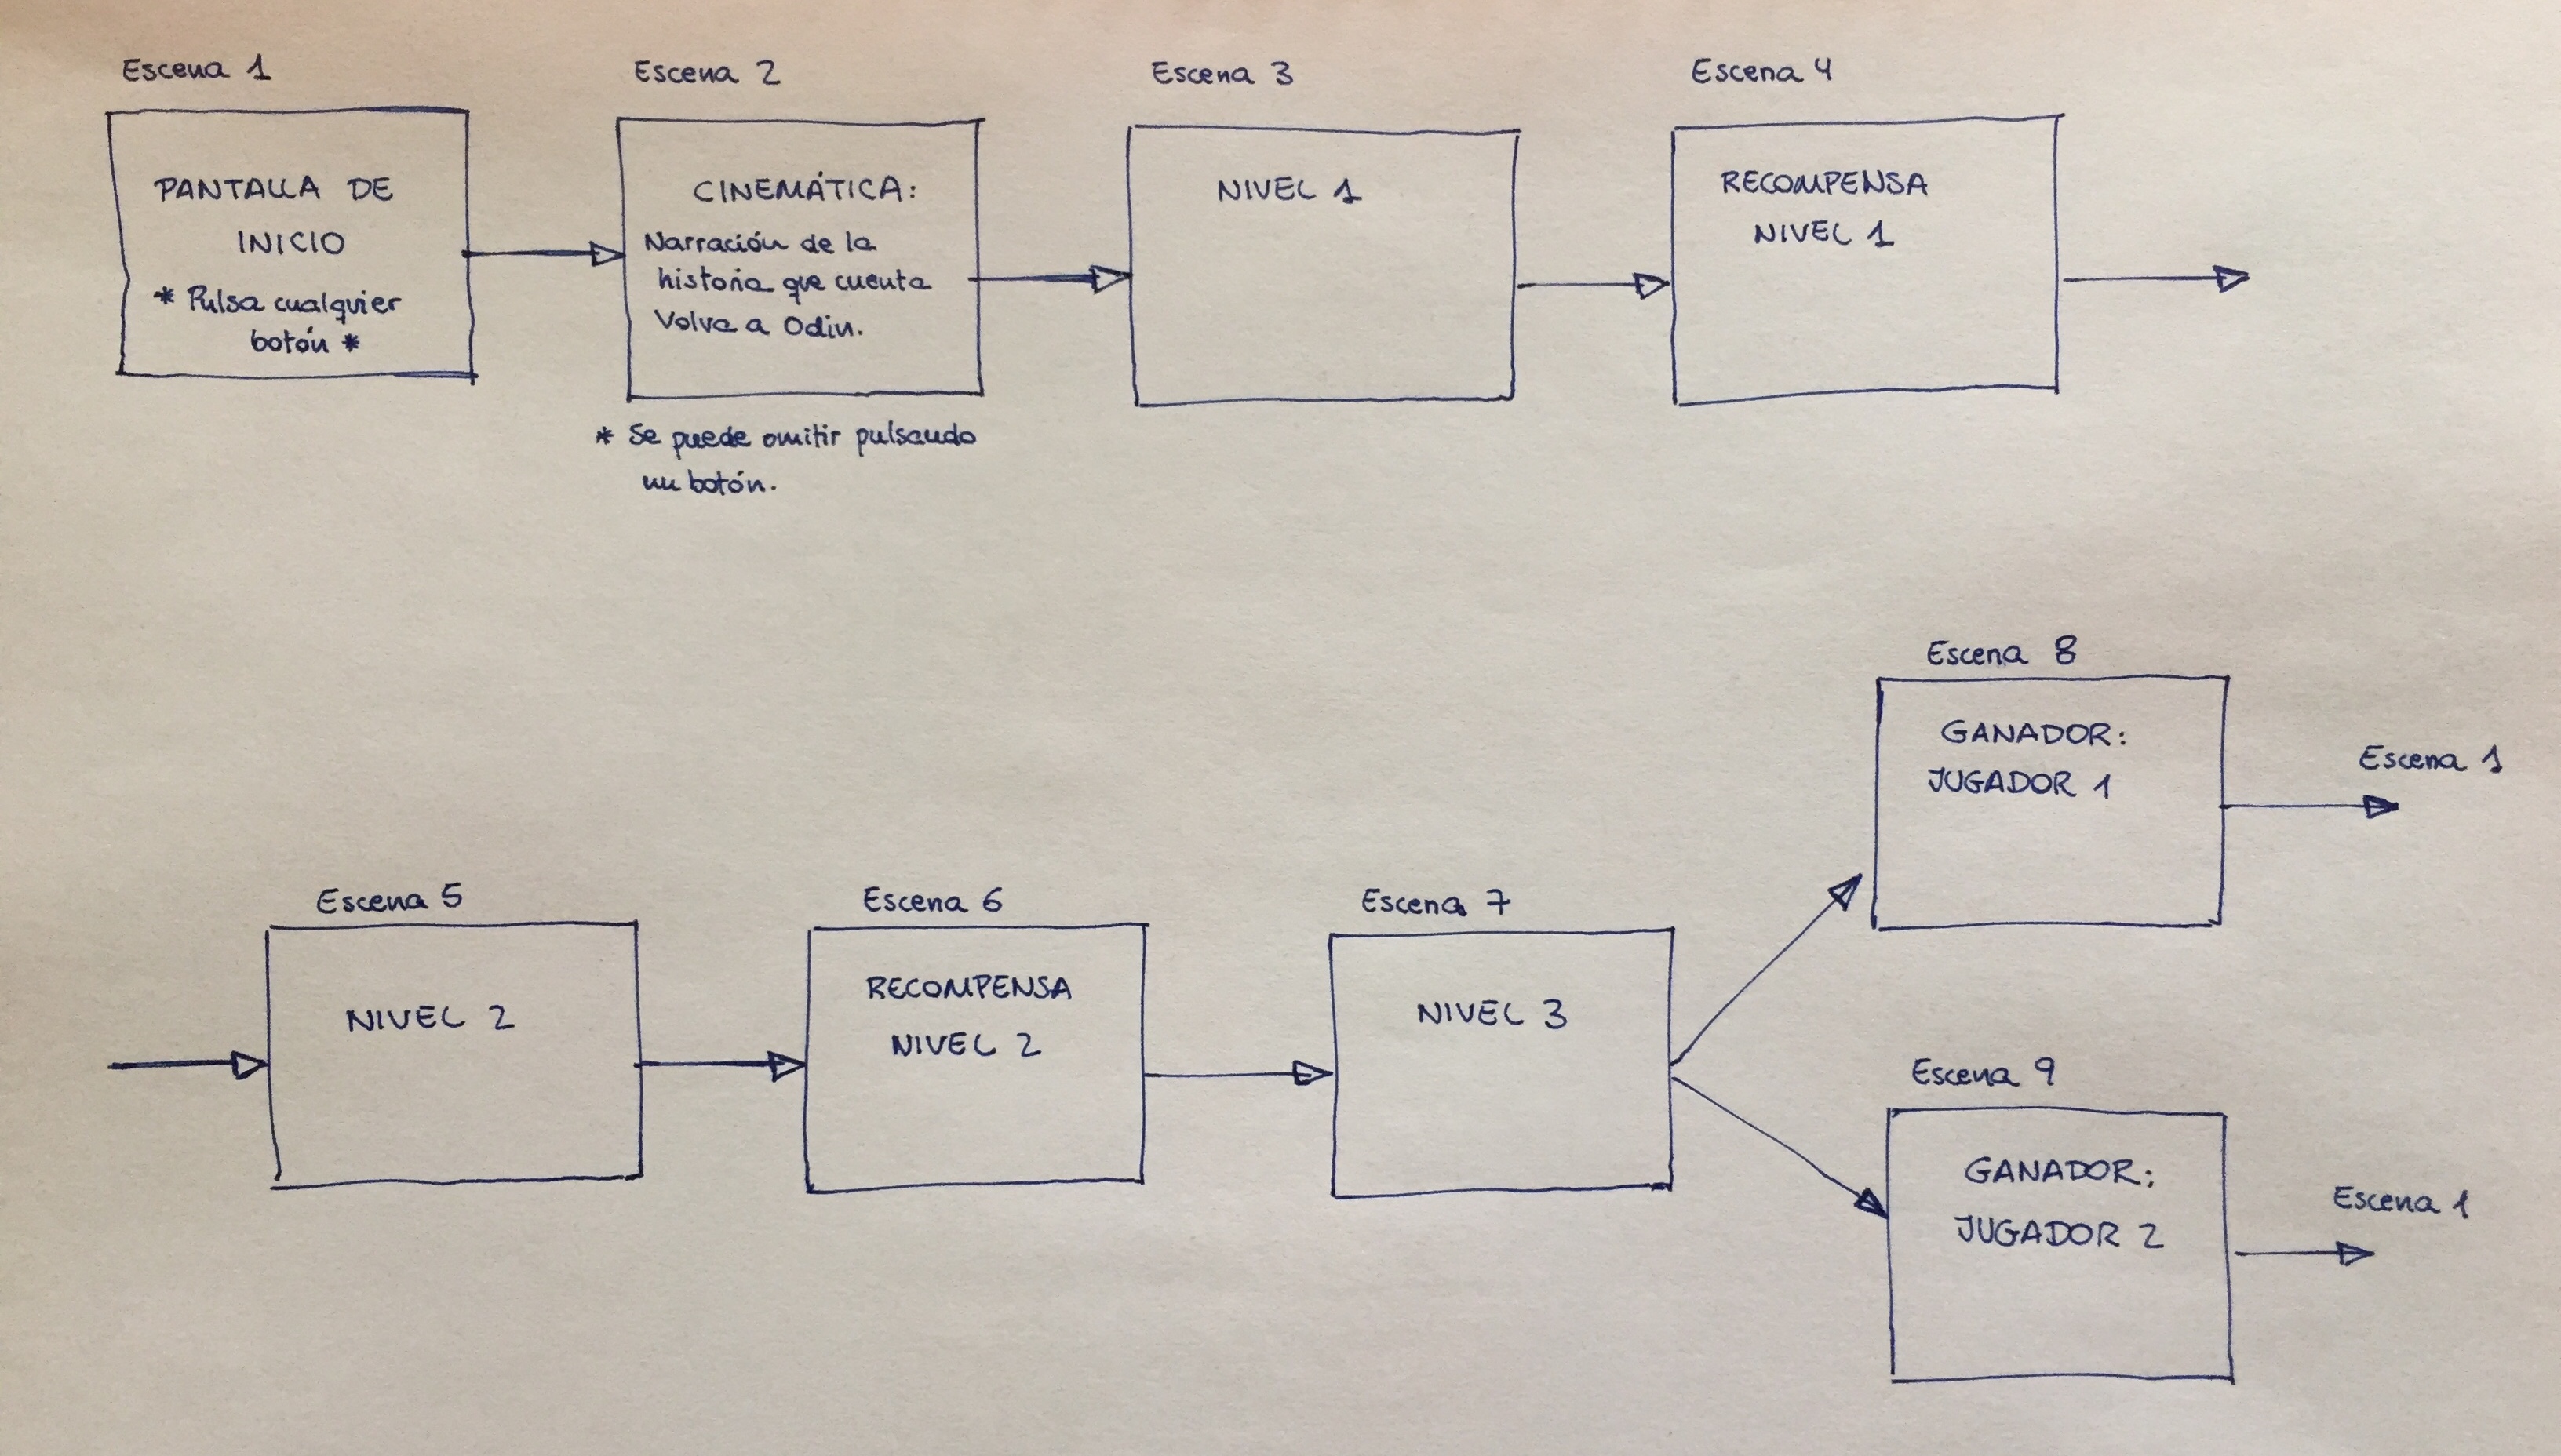 Escena 1
PANTALLA DE
INICIO
* Pulsa cualquier
botón *
Escena 2
CINEMÁTICA:
Narración de la
historia que cuenta
Volva a Odin.
* Se puede omitir pulsando
un botón.
Escena 3
NIVEL 1
Escena 4
RECOMPENSA
NIVEL 1
Escena 5
NIVEL 2
Escena 6
RECOMPENSA
NIVEL 2
Escena 7
NIVEL 3
Escena 8
GANADOR:
JUGADOR 1
Escena 1
Escena 9
GANADOR:
JUGADOR 2
Escena 1